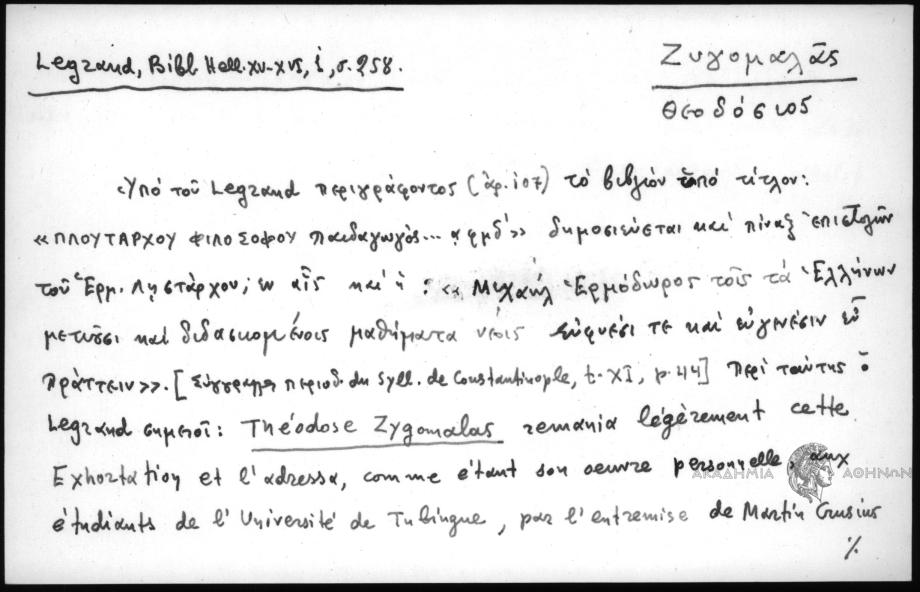 Legrand, Bibl Hell. XV-XVI, i, σ. 258.
Ζυγομαλᾶς
Θεοδόσιος
Ὑπό τοῦ Legrand περιγράφοντος (ἀρ. 107) τό βιβλίον ὑπό τίτλον:
«ΠΛΟΥΤΑΡΧΟΥ ΦΙΛΟΣΟΦΟΥ Παιδαγωγός... ͵αφμδ´» δημοσιεύεται καί πίναξ ἐπιστολῶν
τοῦ Ἑρμ. Ληστάρχου, ἐν αἷς καί ἡ: «Μιχαήλ Ἑρμόδωρος τοῖς τά Ἑλλήνων
μετιοῦσι καί διδασκομένοις μαθήματα νέοις εὐφυέσι τε καί εὐγενέσιν εὖ
πράττειν». [Σύγγραμμα περιοδ. du Syll. de Constantinople, t. XI, p. 44] Περί ταύτης ὁ
Legrand σημειοῖ: Théodose Zygomalas remania légèrement cette
Exhortation et l'adressa, comme étant son oeuvre personnelle, aux
étudiants de l'Université de Tubingue, par l'entremise de Martin Crusius
%
ΑΚΑΔΗΜΙΑ ΑΘΗΝΩΝ